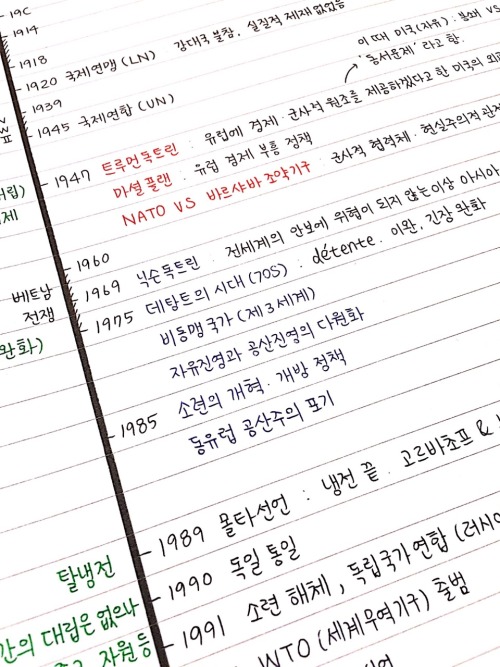 19C
1914
1918
1920 국제연맹 (LN) 강대국 불참, 실질적 제재 없었음
1939
이 때 미국(자유) : 봉쇄 VS
'동서문제' 라고 함.
1945 국제연합 (UN)
1947 트루먼독트린 : 유럽에 경제 · 군사적 원조를 제공하겠다고 한 미국의 외교
마셜플랜 : 유럽 경제 부흥 정책
NATO VS 바르샤바 조약기구 군사적 협력체 · 현실주의적 관점
1960
1969 닉슨독트린 · 전세계의 안보에 위협이 되지 않는이상 아시아
1975 데탕트의 시대 (70S) : détente . 이완, 긴장 완화
비동맹국가 (제3세계)
자유진영과 공산진영의 다원화
1985 소련의 개혁 · 개방 정책
동유럽 공산주의 포기
1989 몰타선언 : 냉전 끝 . 고르바초프 &
1990 독일 통일
1991 소련 해체 , 독립국가연합 (러시아
WTO (세계무역기구) 출범
WW
II
제
베트남
전쟁
완화)
탈냉전
간의 대립은 없으나
자원 등